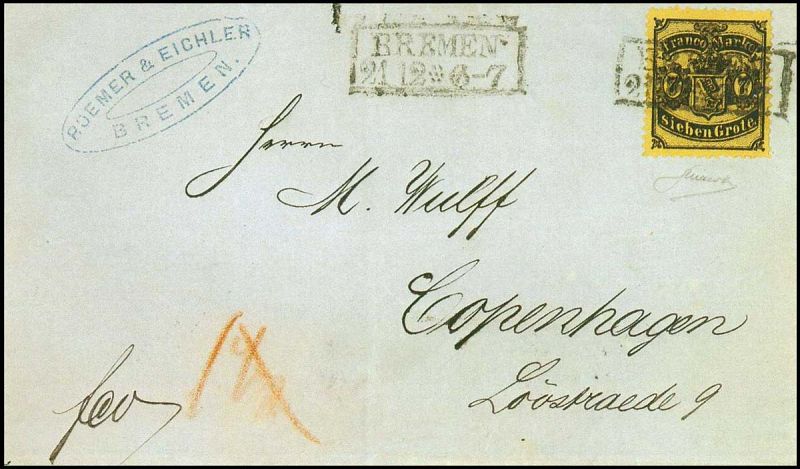 ROEMER & EICHLER
BREMEN.
BREMEN
21 12 6-7
Franco Marke
7 7
Sieben Grote.
Herrn
M. Wulff
Copenhagen
Lövstraede 9
fco